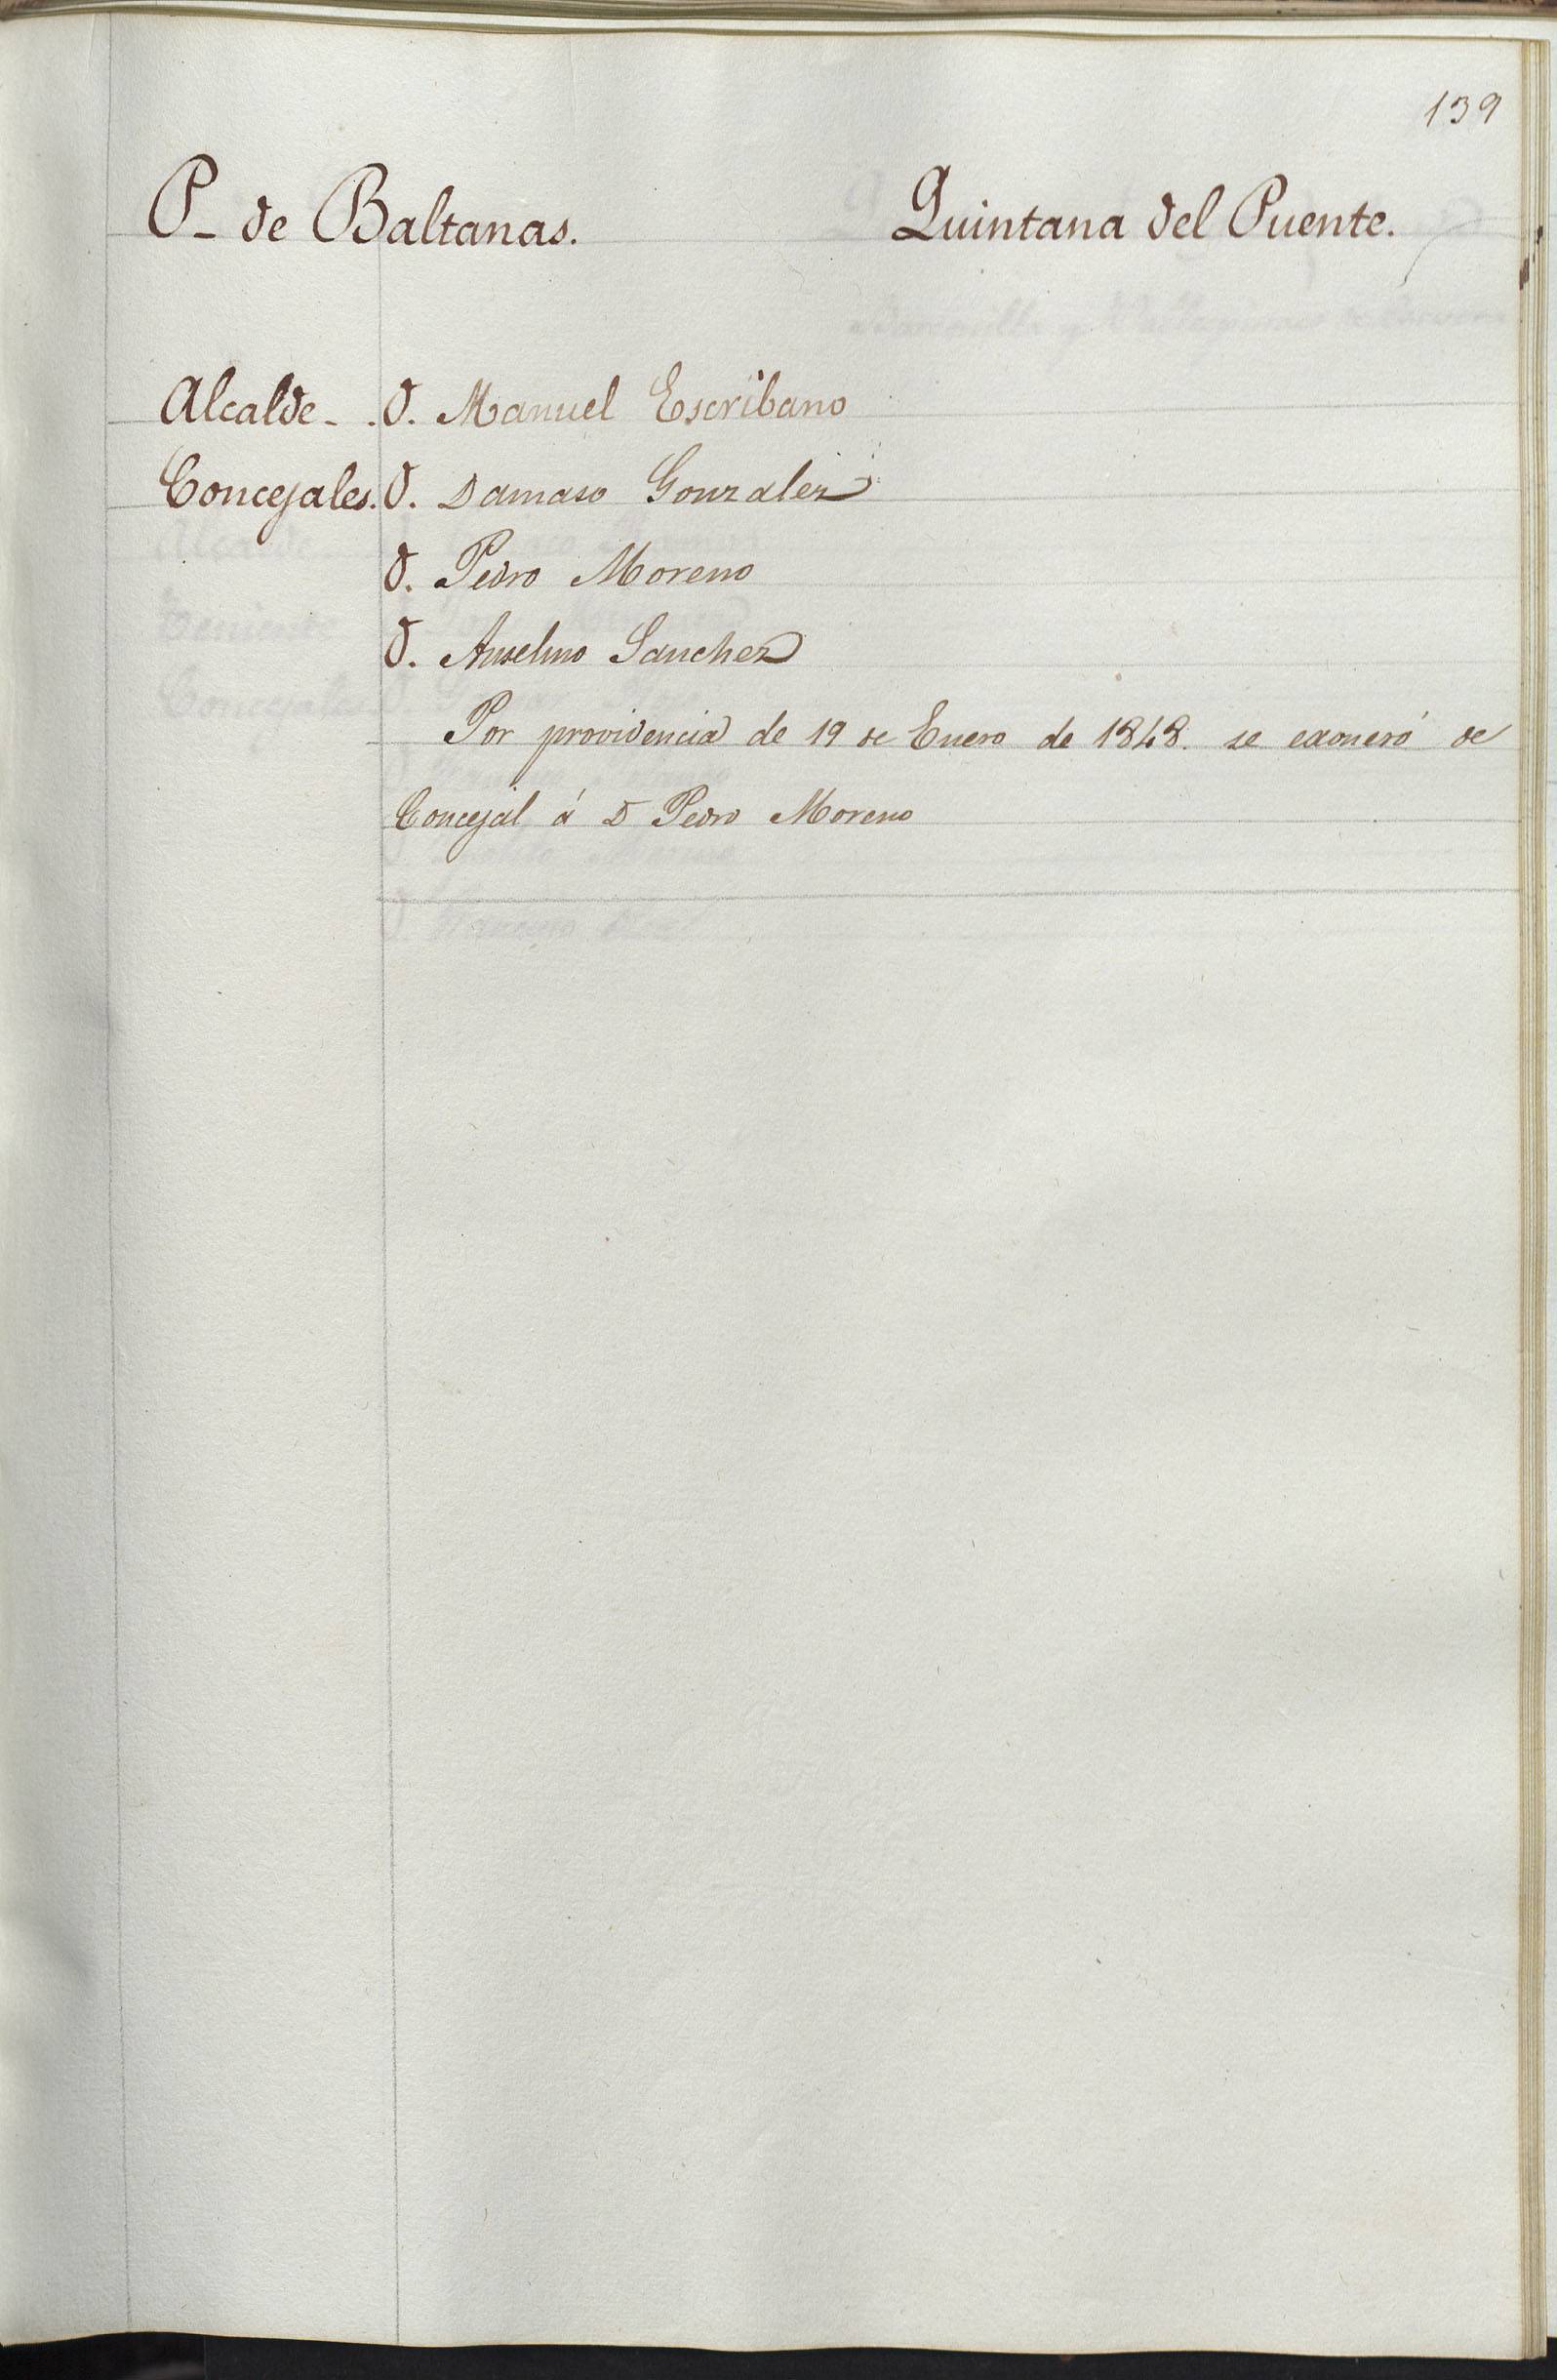 139
P_ de Baltanas. Quintana del Puente.
Alcalde_ . D. Manuel Escribano
Concejales. D. Damaso Gonzalez
D. Pedro Moreno
D. Anselmo Sanchez
Por providencia de 19 de Enero de 1848. se exoneró de
Concejal á D Pedro Moreno